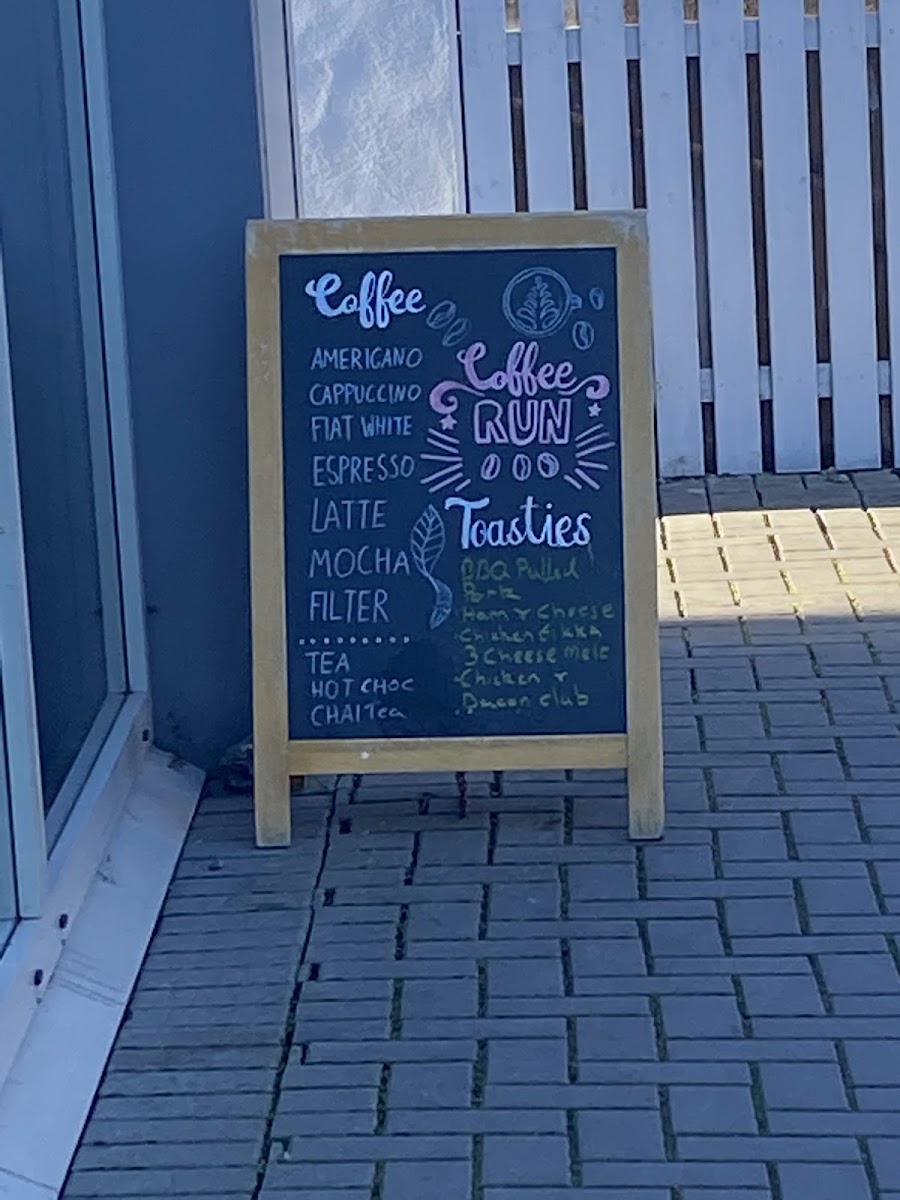 Coffee
AMERICANO
CAPPUCCINO
FlAT WHITE
ESPRESSO
LATTE
MOCHA
FILTER
TEA
HOT CHOC
CHAI Tea
Coffee
RUN
Toasties
BBQ Pulled
Pork
Ham + Cheese
Chicken tikka
3 Cheese Melt
Chicken +
Bacon club